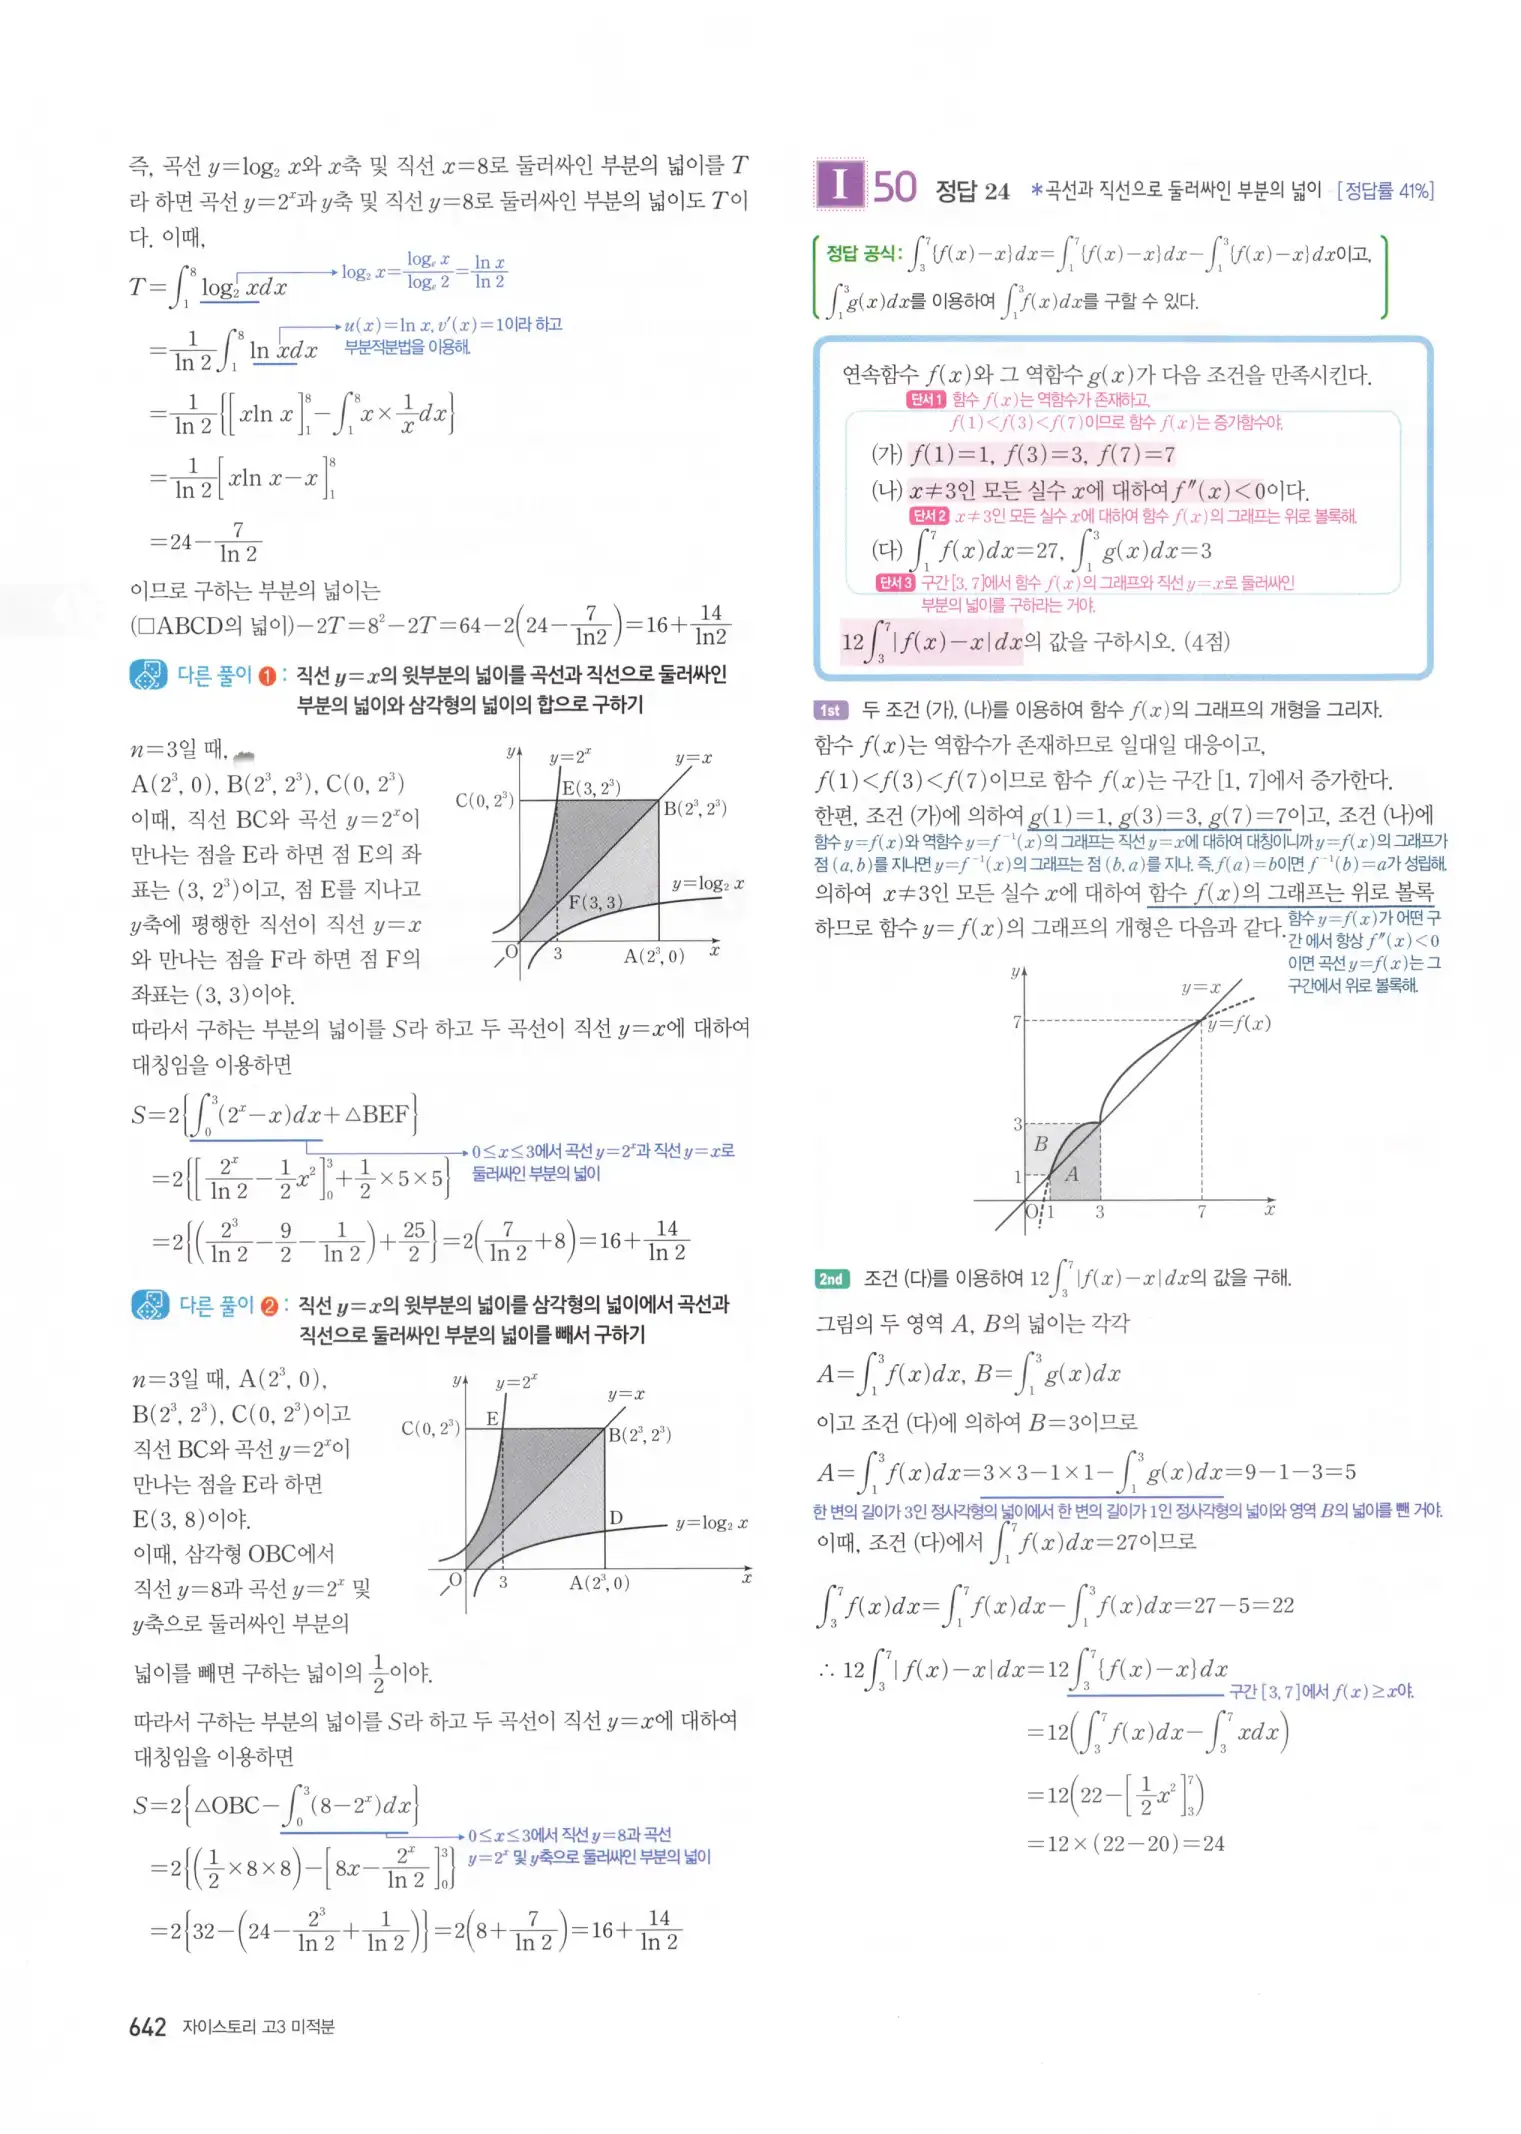 즉, 곡선 y=log₂ x와 x축 및 직선 x=8로 둘러싸인 부분의 넓이를 T
라 하면 곡선 y=2ˣ과 y축 및 직선 y=8로 둘러싸인 부분의 넓이도 T이
다. 이때,
T=∫₁⁸ log₂ xdx → log₂ x=logₑ x/logₑ 2=ln x/ln 2
=1/ln 2 ∫₁⁸ ln xdx → u(x)=ln x, v′(x)=1이라 하고
부분적분법을 이용해.
=1/ln 2{[xln x]₁⁸−∫₁⁸ x×1/x dx}
=1/ln 2[xln x−x]₁⁸
=24−7/ln 2
이므로 구하는 부분의 넓이는
(□ABCD의 넓이)−2T=8²−2T=64−2(24−7/ln2)=16+14/ln2
다른 풀이 ❶ : 직선 y=x의 윗부분의 넓이를 곡선과 직선으로 둘러싸인
부분의 넓이와 삼각형의 넓이의 합으로 구하기
n=3일 때,
A(2³, 0), B(2³, 2³), C(0, 2³)
이때, 직선 BC와 곡선 y=2ˣ이
만나는 점을 E라 하면 점 E의 좌
표는 (3, 2³)이고, 점 E를 지나고
y축에 평행한 직선이 직선 y=x
와 만나는 점을 F라 하면 점 F의
좌표는 (3, 3)이야.
y y=2ˣ y=x
C(0, 2³) E(3, 2³) B(2³, 2³)
y=log₂ x
F(3, 3)
O 3 A(2³, 0) x
따라서 구하는 부분의 넓이를 S라 하고 두 곡선이 직선 y=x에 대하여
대칭임을 이용하면
S=2{∫₀³(2ˣ−x)dx+△BEF}
→ 0≤x≤3에서 곡선 y=2ˣ과 직선 y=x로
둘러싸인 부분의 넓이
=2{[2ˣ/ln 2−1/2 x²]₀³+1/2×5×5}
=2{(2³/ln 2−9/2−1/ln 2)+25/2}=2(7/ln 2+8)=16+14/ln 2
다른 풀이 ❷ : 직선 y=x의 윗부분의 넓이를 삼각형의 넓이에서 곡선과
직선으로 둘러싸인 부분의 넓이를 빼서 구하기
n=3일 때, A(2³, 0),
B(2³, 2³), C(0, 2³)이고
직선 BC와 곡선 y=2ˣ이
만나는 점을 E라 하면
E(3, 8)이야.
이때, 삼각형 OBC에서
직선 y=8과 곡선 y=2ˣ 및
y축으로 둘러싸인 부분의
y y=2ˣ y=x
C(0, 2³) E B(2³, 2³)
D y=log₂ x
O 3 A(2³, 0) x
넓이를 빼면 구하는 넓이의 1/2이야.
따라서 구하는 부분의 넓이를 S라 하고 두 곡선이 직선 y=x에 대하여
대칭임을 이용하면
S=2{△OBC−∫₀³(8−2ˣ)dx}
→ 0≤x≤3에서 직선 y=8과 곡선
y=2ˣ 및 y축으로 둘러싸인 부분의 넓이
=2{(1/2×8×8)−[8x−2ˣ/ln 2]₀³}
=2{32−(24−2³/ln 2+1/ln 2)}=2(8+7/ln 2)=16+14/ln 2
642 자이스토리 고3 미적분
I 50 정답 24 *곡선과 직선으로 둘러싸인 부분의 넓이 [정답률 41%]
정답 공식: ∫₃⁷{f(x)−x}dx=∫₁⁷{f(x)−x}dx−∫₁³{f(x)−x}dx이고,
∫₁³g(x)dx를 이용하여 ∫₁³f(x)dx를 구할 수 있다.
연속함수 f(x)와 그 역함수 g(x)가 다음 조건을 만족시킨다.
단서1 함수 f(x)는 역함수가 존재하고,
f(1)<f(3)<f(7)이므로 함수 f(x)는 증가함수야.
(가) f(1)=1, f(3)=3, f(7)=7
(나) x≠3인 모든 실수 x에 대하여 f″(x)<0이다.
단서2 x≠3인 모든 실수 x에 대하여 함수 f(x)의 그래프는 위로 볼록해.
(다) ∫₁⁷ f(x)dx=27, ∫₁³ g(x)dx=3
단서3 구간 [3, 7]에서 함수 f(x)의 그래프와 직선 y=x로 둘러싸인
부분의 넓이를 구하라는 거야.
12∫₃⁷|f(x)−x|dx의 값을 구하시오. (4점)
1st 두 조건 (가), (나)를 이용하여 함수 f(x)의 그래프의 개형을 그리자.
함수 f(x)는 역함수가 존재하므로 일대일 대응이고,
f(1)<f(3)<f(7)이므로 함수 f(x)는 구간 [1, 7]에서 증가한다.
한편, 조건 (가)에 의하여 g(1)=1, g(3)=3, g(7)=7이고, 조건 (나)에
함수 y=f(x)와 역함수 y=f⁻¹(x)의 그래프는 직선 y=x에 대하여 대칭이니까 y=f(x)의 그래프가
점 (a, b)를 지나면 y=f⁻¹(x)의 그래프는 점 (b, a)를 지나. 즉, f(a)=b이면 f⁻¹(b)=a가 성립해.
의하여 x≠3인 모든 실수 x에 대하여 함수 f(x)의 그래프는 위로 볼록
하므로 함수 y=f(x)의 그래프의 개형은 다음과 같다.
함수 y=f(x)가 어떤 구
간에서 항상 f″(x)<0
이면 곡선 y=f(x)는 그
구간에서 위로 볼록해.
y y=x
7 y=f(x)
3
B
1 A
O 1 3 7 x
2nd 조건 (다)를 이용하여 12∫₃⁷|f(x)−x|dx의 값을 구해.
그림의 두 영역 A, B의 넓이는 각각
A=∫₁³f(x)dx, B=∫₁³g(x)dx
이고 조건 (다)에 의하여 B=3이므로
A=∫₁³f(x)dx=3×3−1×1−∫₁³g(x)dx=9−1−3=5
한 변의 길이가 3인 정사각형의 넓이에서 한 변의 길이가 1인 정사각형의 넓이와 영역 B의 넓이를 뺀 거야.
이때, 조건 (다)에서 ∫₁⁷ f(x)dx=27이므로
∫₃⁷ f(x)dx=∫₁⁷ f(x)dx−∫₁³ f(x)dx=27−5=22
∴ 12∫₃⁷|f(x)−x|dx=12∫₃⁷{f(x)−x}dx
구간 [3, 7]에서 f(x)≥x야.
=12(∫₃⁷ f(x)dx−∫₃⁷ xdx)
=12(22−[1/2 x²]₃⁷)
=12×(22−20)=24